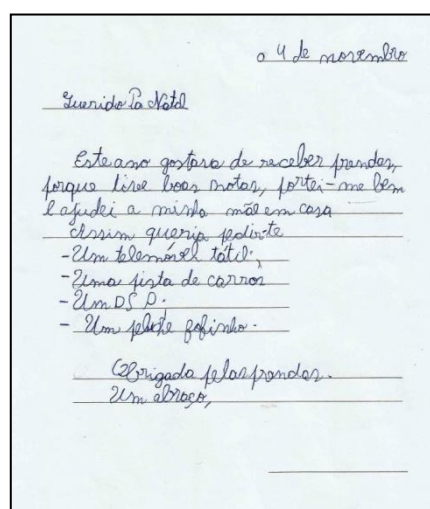 a 4 de novembro
Querido Pa Natal
Este ano gostava de receber prendas,
porque tirei boas notas, portei-me bem
e ajudei a minha mãe em casa
Assim queria pedir-te
-Um telemóvel tátil.
-Uma pista de carros
-Um DS P.
- Um peluche fofinho.
Obrigada pelas prendas.
Um abraço,